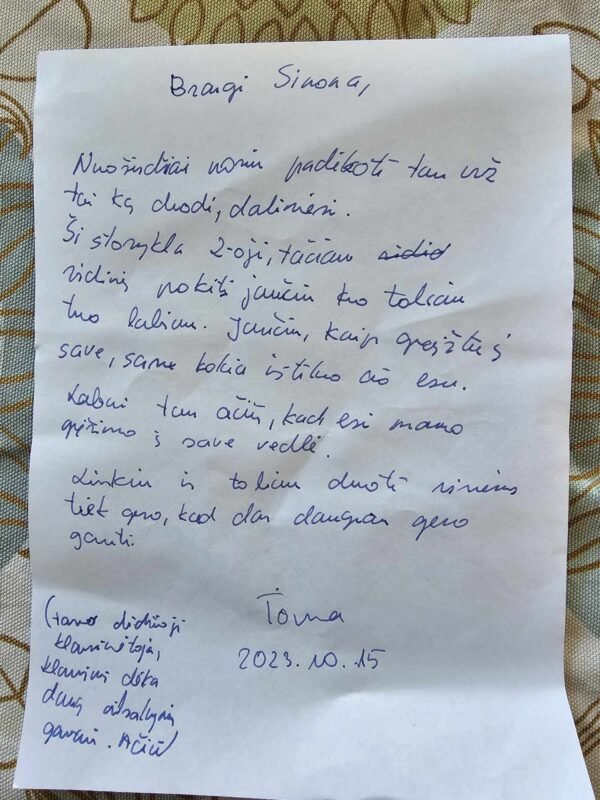 Brangi Simona,
Nuoširdžiai noriu padėkoti tau už
tai ką duodi, daliniesi.
Ši stovykla 2-oji, tačiau
vidinį pokytį jaučiu kuo toliau
tuo labiau. Jaučiu, kaip grįžtu į
save, save kokia iš tikro aš esu.
Labai tau ačiū, kad esi mano
grįžimo į save vedlė.
Linkiu ir toliau duoti visiems
tiek gero, kad dar daugiau gero
gauti.
Toma
2023.10.15
(tavo didžioji
klausinėtoja,
klausimų dėka
daug atsakymų
gavau. Ačiū)